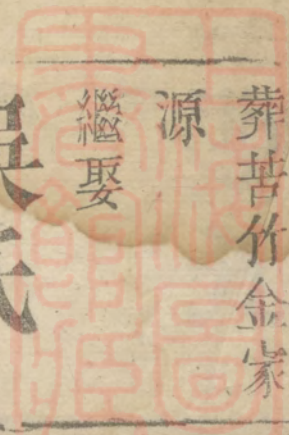 葬苦竹金家
源
繼娶
吳氏